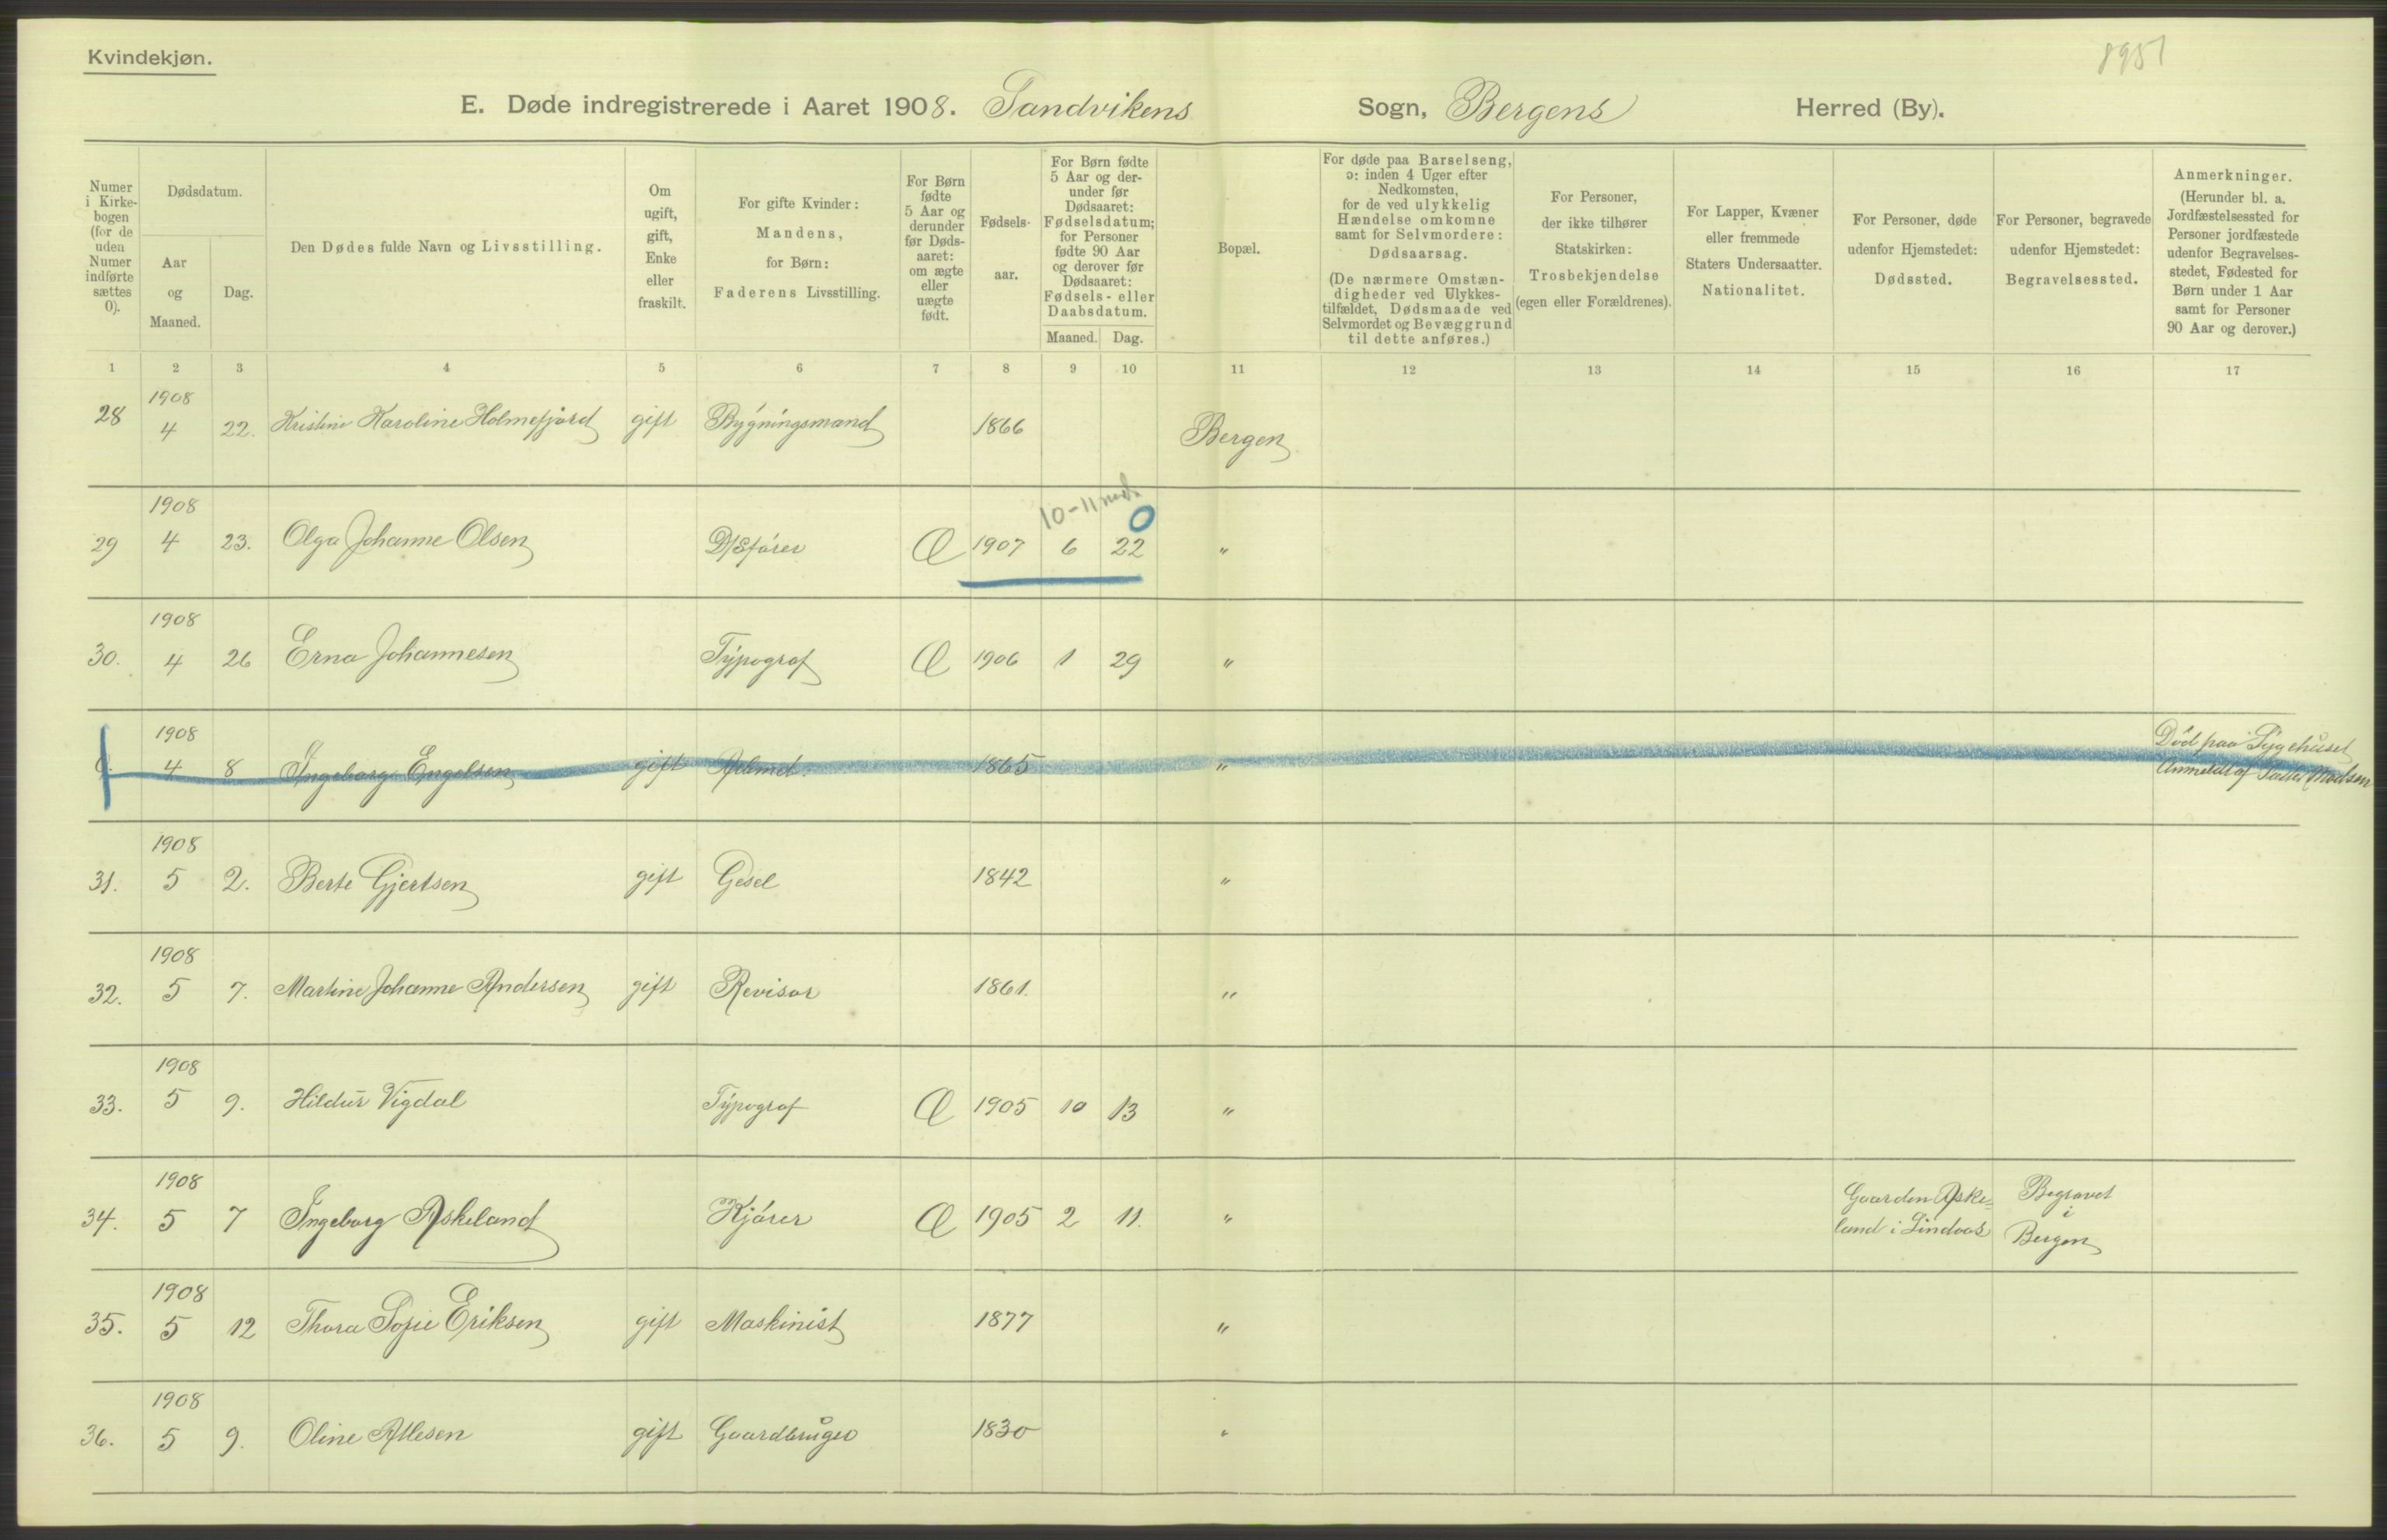 Kvindekjøn.
8951
E. Døde indregistrerede i Aaret 1908. Sandvikens Sogn, Bergens Herred (By).
Numer i Kirkebogen (for de uden Numer indførte sættes 0).
Dødsdatum.
Aar og Maaned.
Dag.
Den Dødes fulde Navn og Livsstilling.
Om ugift, gift, Enke eller fraskilt.
For gifte Kvinder: Mandens, for Børn: Faderens Livsstilling.
For Børn fødte 5 Aar og derunder før Dødsaaret: om ægte eller uægte født.
Fødselsaar.
For Børn fødte 5 Aar og derunder før Dødsaaret: Fødselsdatum; for Personer fødte 90 Aar og derover før Dødsaaret: Fødsels- eller Daabsdatum.
Maaned. Dag.
Bopæl.
For døde paa Barselseng, ɔ: inden 4 Uger efter Nedkomsten, for de ved ulykkelig Hændelse omkomne samt for Selvmordere: Dødsaarsag.
(De nærmere Omstændigheder ved Ulykkestilfældet, Dødsmaade ved Selvmordet og Bevæggrund til dette anføres.)
For Personer, der ikke tilhører Statskirken: Trosbekjendelse (egen eller Forældrenes).
For Lapper, Kvæner eller fremmede Staters Undersaatter. Nationalitet.
For Personer, døde udenfor Hjemstedet: Dødssted.
For Personer, begravede udenfor Hjemstedet: Begravelsessted.
Anmerkninger. (Herunder bl. a. Jordfæstelsessted for Personer jordfæstede udenfor Begravelsesstedet, Fødested for Børn under 1 Aar samt for Personer 90 Aar og derover.)
1 2 3 4 5 6 7 8 9 10 11 12 13 14 15 16 17
28 1908 4 22. Kristine Karoline Holmefjord gift Bygningsmand 1866 Bergen
10-11 md. 0
29 1908 4 23. Olga Johanne Olsen D/Sfører Æ 1907 6 22 "
30. 1908 4 26 Erna Johannesen Typograf Æ 1906 1 29 "
1908 4 8 Ingeborg Engelsen gift Arbmd. 1865 " Död paa Sygehuset
Anmeldt af Madsen
31. 1908 5 2. Berte Gjertsen gift Gesel 1842 "
32. 1908 5 7. Martine Johanne Andersen gift Revisor 1861. "
33. 1908 5 9. Hildur Vigdal Typograf Æ 1905 10 13 "
34. 1908 5 7 Ingeborg Askeland Kjører Æ 1905 2 11. " Gaarden Askeland i Lindaas Begravet i Bergen
35. 1908 5 12 Thora Sofie Eriksen gift Maskinist 1877 "
36. 1908 5 9. Oline Atlesen gift Gaardbruger 1830 "